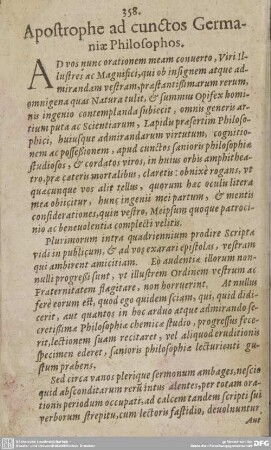 358.
Apostrophe ad cunctos Germa-
niæ Philosophos.
AD vos nunc orationem meam conuerto, Viri Il-
lustres ac Magnifici, qui ob insignem atque ad-
mirandam vestram, præstantissimarum rerum,
omnigena quas Natura tulit, & summus Opifex homi-
nis ingenio contemplanda subiecit, omnis generis ar-
tium puta ac Scientiarum, Lapidis præsertim Philoso-
phici, huiusque admirandarum virtutum, cognitio-
nem ac possessionem, apud cunctos sanioris philosophiæ
studiosos, & cordatos viros, in huius orbis amphithea-
tro, præ cateris mortalibus, claretis: obnixè rogans, vt
quæcunque vos alit tellus, quorum hac oculis litera
mea obiicitur, hunc ingenii mei partum, & mentis
considerationes, quin vestro, Meipsum quoque patroci-
nio ac beneuolentia complecti velitis.
Plurimorum intra quadriennium prodire Scripta
vidi in publicum, & ad vos exarari epistolas, vestram
qui ambirent amicitiam. Eò audentiæ illorum non-
nulli progressi sunt, vt illustrem Ordinem vestrum ac
Fraternitatem flagitare, non horruerint. At nullus
ferè eorum est, quod ego quidem sciam, qui, quid didi-
cerit, aut quantos in hoc arduo atque admirando se-
cretissimæ Philosophiæ chemicæ studio, progressus fece-
rit, lectionem suam recitaret, vel aliquod eruditionis
specimen ederet, sanioris philosophiæ lecturienti gu-
stum præbens,
Sed circa vanos plerique sermonum ambages, nescio
quid absconditarum rerū intus alentes, per totam orati-
onis periodum occupati, ad calcem tandem scripti sui
verborum strepitu, cum lectoris fastidio, deuoluuntur
Aut